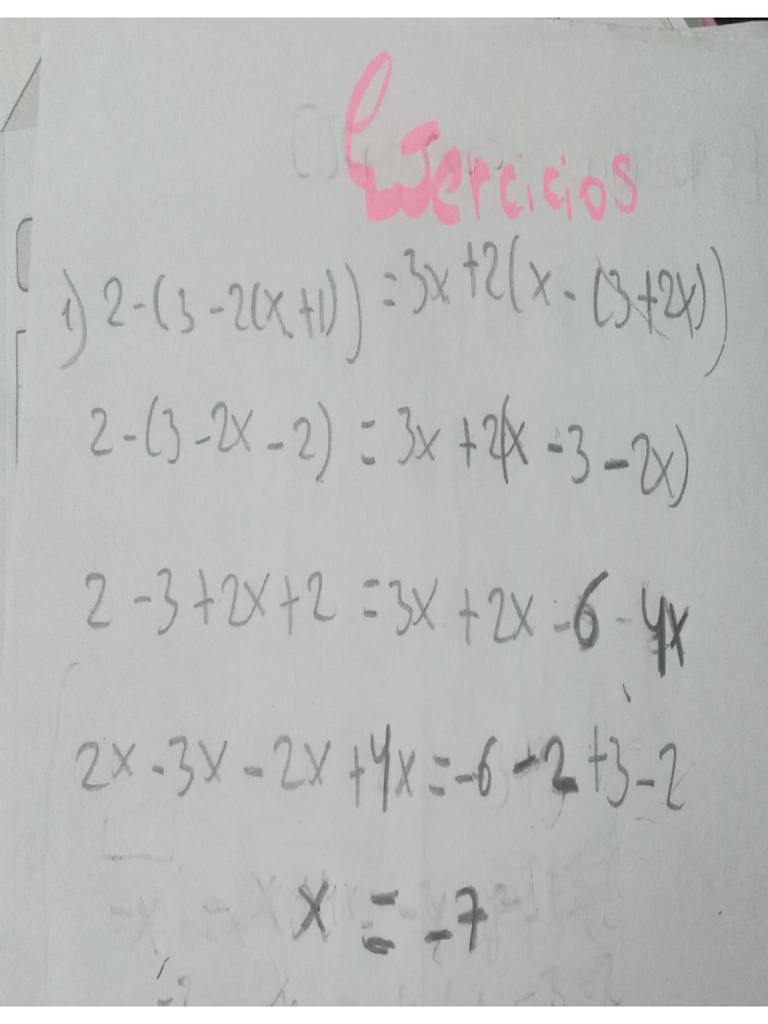 Ejercicios
1) 2-(3-2(x+1))=3x+2(x-(3+2x))
2-(3-2x-2)=3x+2(x-3-2x)
2-3+2x+2=3x+2x-6-4x
2x-3x-2x+4x=-6-2+3-2
x=-7